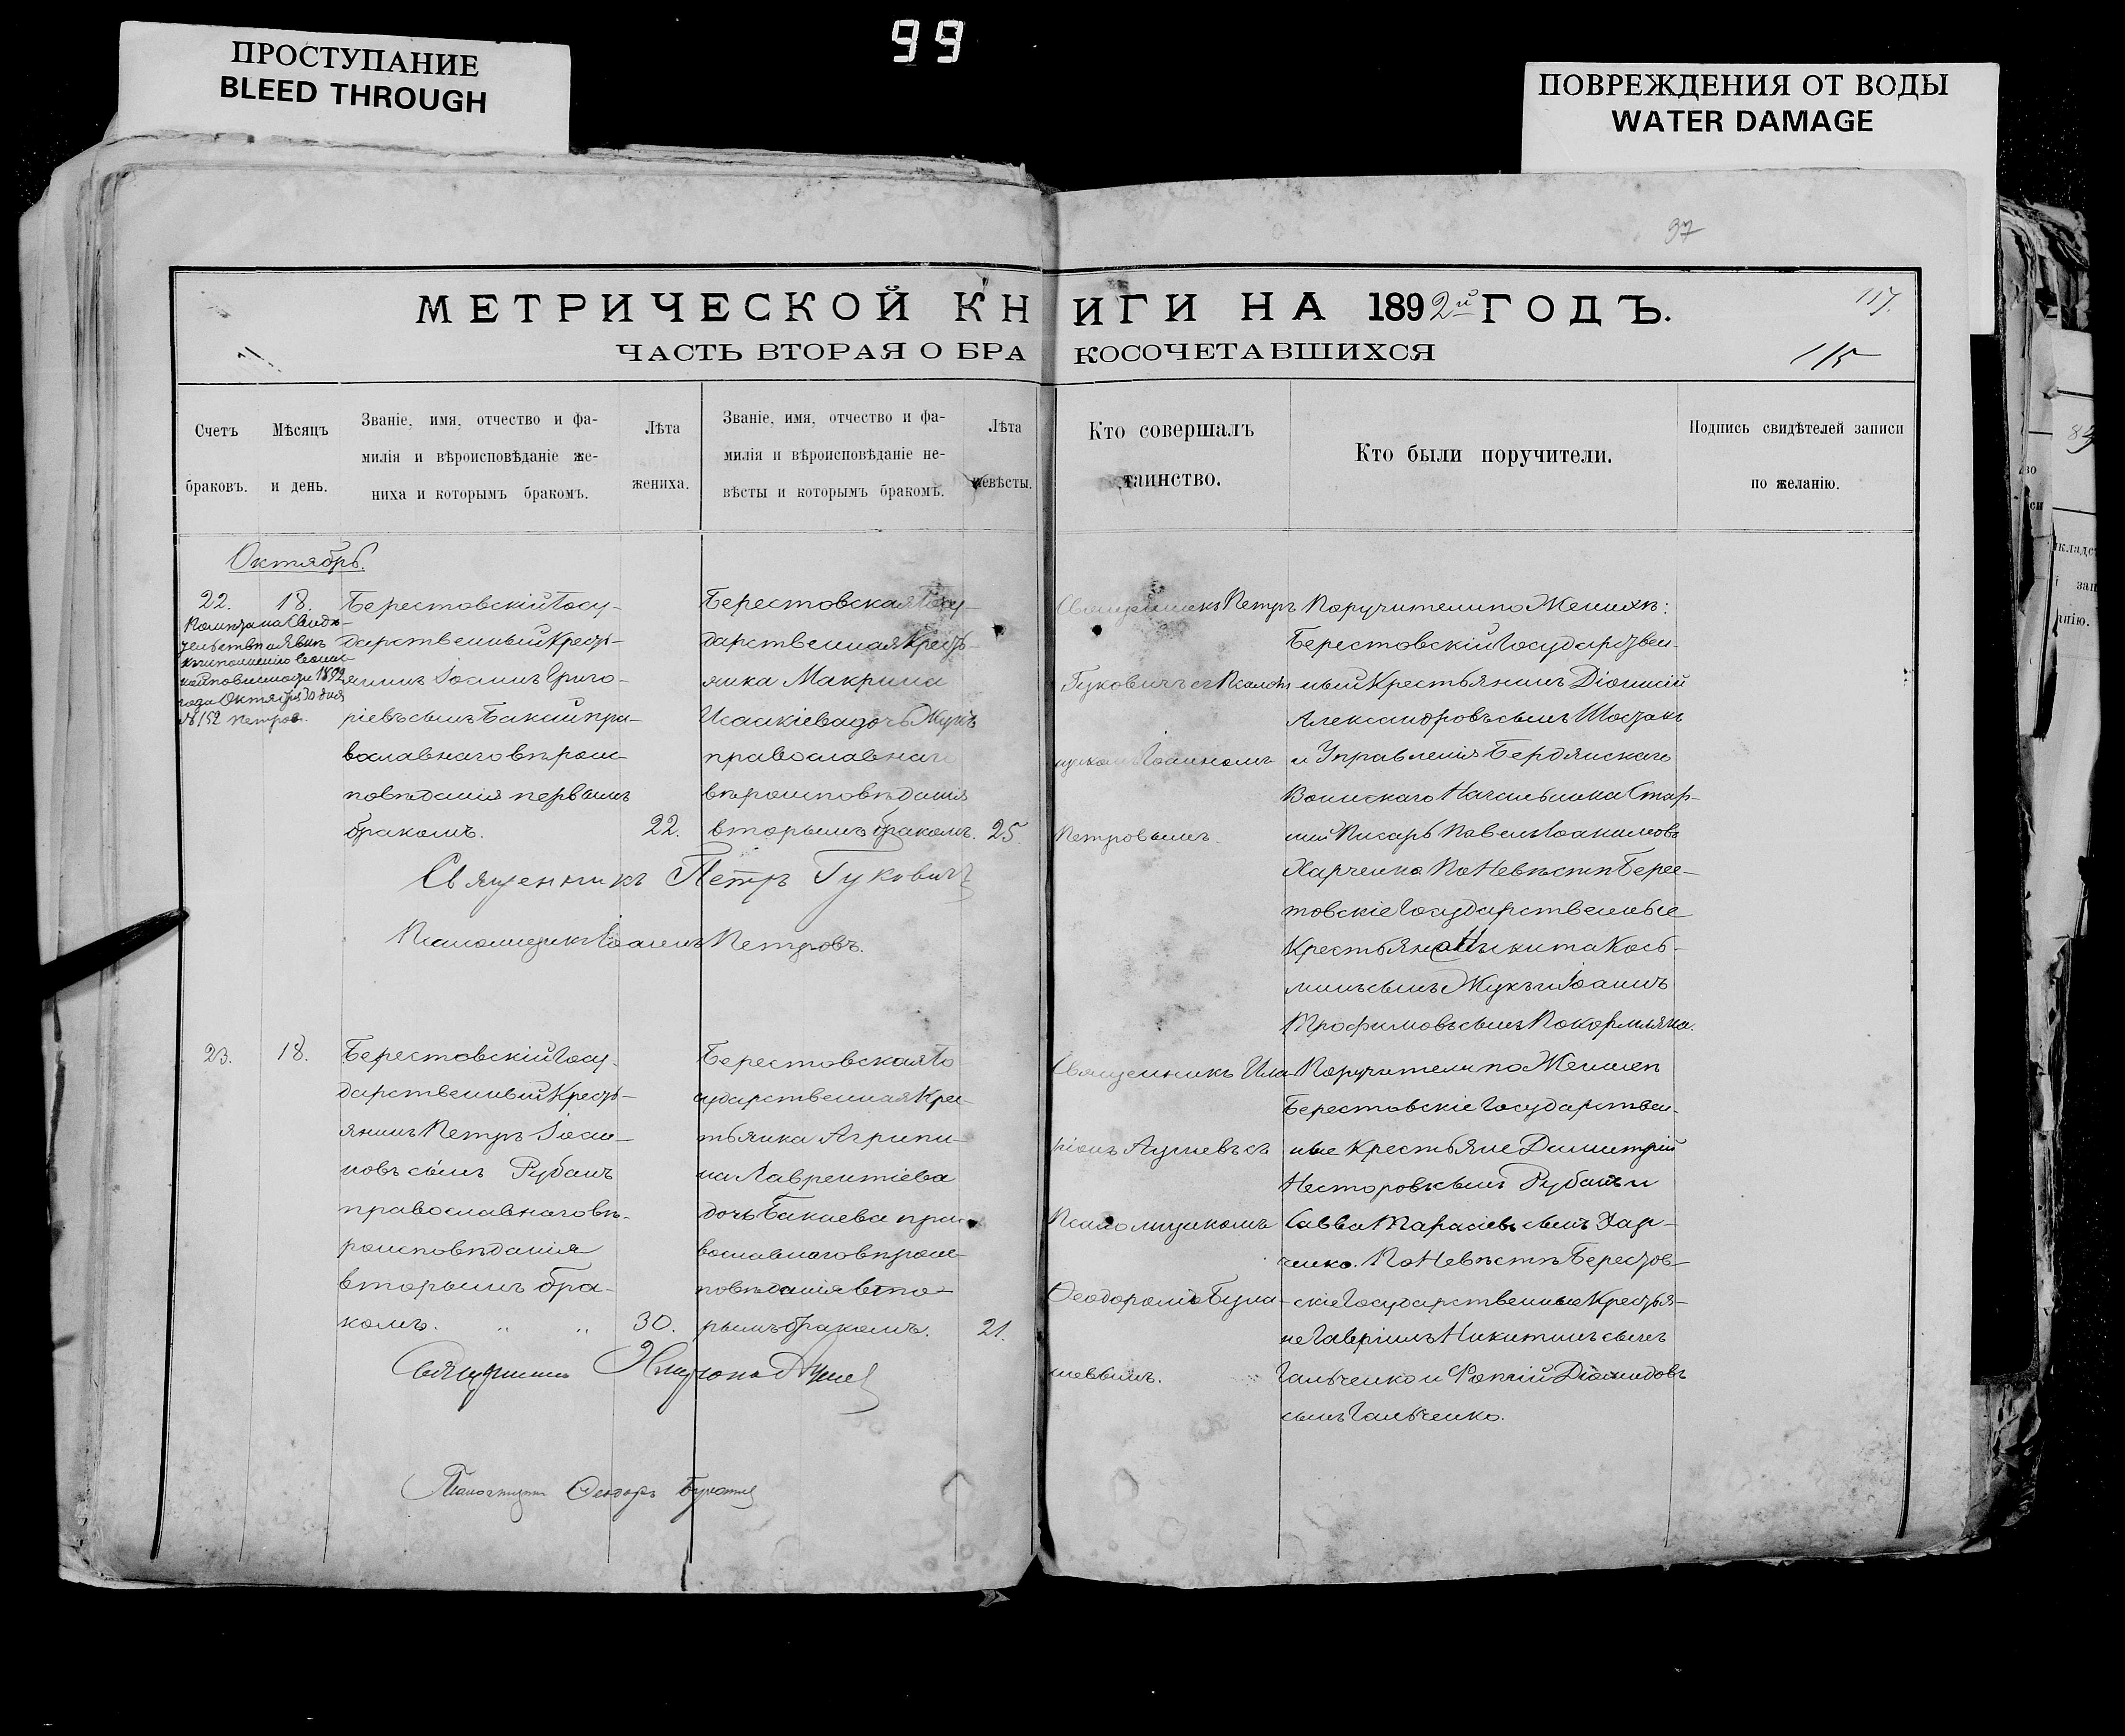 99
ПРОСТУПАНИЕ
BLEED THROUGH
ПОВРЕЖДЕНИЯ ОТ ВОДЫ
WATER DAMAGE
97
МЕТРИЧЕСКОЙ КНИГИ НА 1892й ГОДЪ.
117.
ЧАСТЬ ВТОРАЯ О БРАКОСОЧЕТАВШИХСЯ
115
Счетъ
браковъ.
Мѣсяцъ
и день.
Званіе, имя, отчество и фа-
милія и вѣроисповѣданіе же-
ниха и которымъ бракомъ.
Лѣта
жениха.
Званіе, имя, отчество и фа-
милія и вѣроисповѣданіе не-
вѣсты и которымъ бракомъ.
Лѣта
невѣсты.
Кто совершалъ
таинство.
Кто были поручители.
Подпись свидѣтелей записи
по желанію.
Октябрь.
22.
18.
года Октября 20 дня
№ 152 Петров.
Берестовскій Госу-
дарственный Кресть-
янинъ Іоаннъ Григо-
ріевъ сынъ Бакай пра-
вославнаго вѣроис-
повѣданія первымъ
бракомъ.
22.
Берестовская Госу-
дарственная Кресть-
янка Макрина
Исаакіева дочь Жукъ
православнаго
вѣроисповѣданія
вторымъ бракомъ.
25.
Священникъ Петръ
Гуковичъ съ Псалом
щикомъ Іоанномъ
Петровымъ.
Поручители по Женихѣ:
Берестовскій Государствен-
ный Крестьянинъ Діонисій
Александровъ сынъ Шостакъ
и Управленія Бердянскаго
Воинскаго Начальника Стар-
шій Писарь Павелъ Іоакимовъ
Харченко По Невѣстѣ Берес-
товскіе Государственные
Крестьяне Никита Кось-
минъ сынъ Жукъ и Іоаннъ
Трофимовъ сынъ Покормляка.
Священникъ Петръ Гуковичъ
Псаломщикъ Іоаннъ Петровъ.
23.
18.
Берестовскій Госу-
дарственный Кресть-
янинъ Петръ Іоан-
новъ сынъ Рубанъ
православнаго вѣ-
роисповѣданія
вторымъ бра-
комъ. " "
30.
Берестовская Го-
сударственная Крес-
тьянка Агрипи-
на Лаврентіева
дочь Бакаева пра-
вославнаго вѣроис-
повѣданія вто-
рымъ бракомъ.
21.
Священникъ Ила-
ріонъ съ
Псаломщикомъ
Ѳеодоромъ
Поручители по Женихѣ
Берестовскіе Государствен-
ные Крестьяне Димитрій
Несторовъ сынъ Рубанъ и
Савва Тарасіевъ сынъ Хар-
ченко. По Невѣстѣ Берестов-
скіе Государственные Крестья-
не Гавріилъ Никитинъ сынъ
Гальченко и Фотій Діомидовъ
сынъ Гальченко.
Священникъ
Псаломщикъ Ѳеодоръ